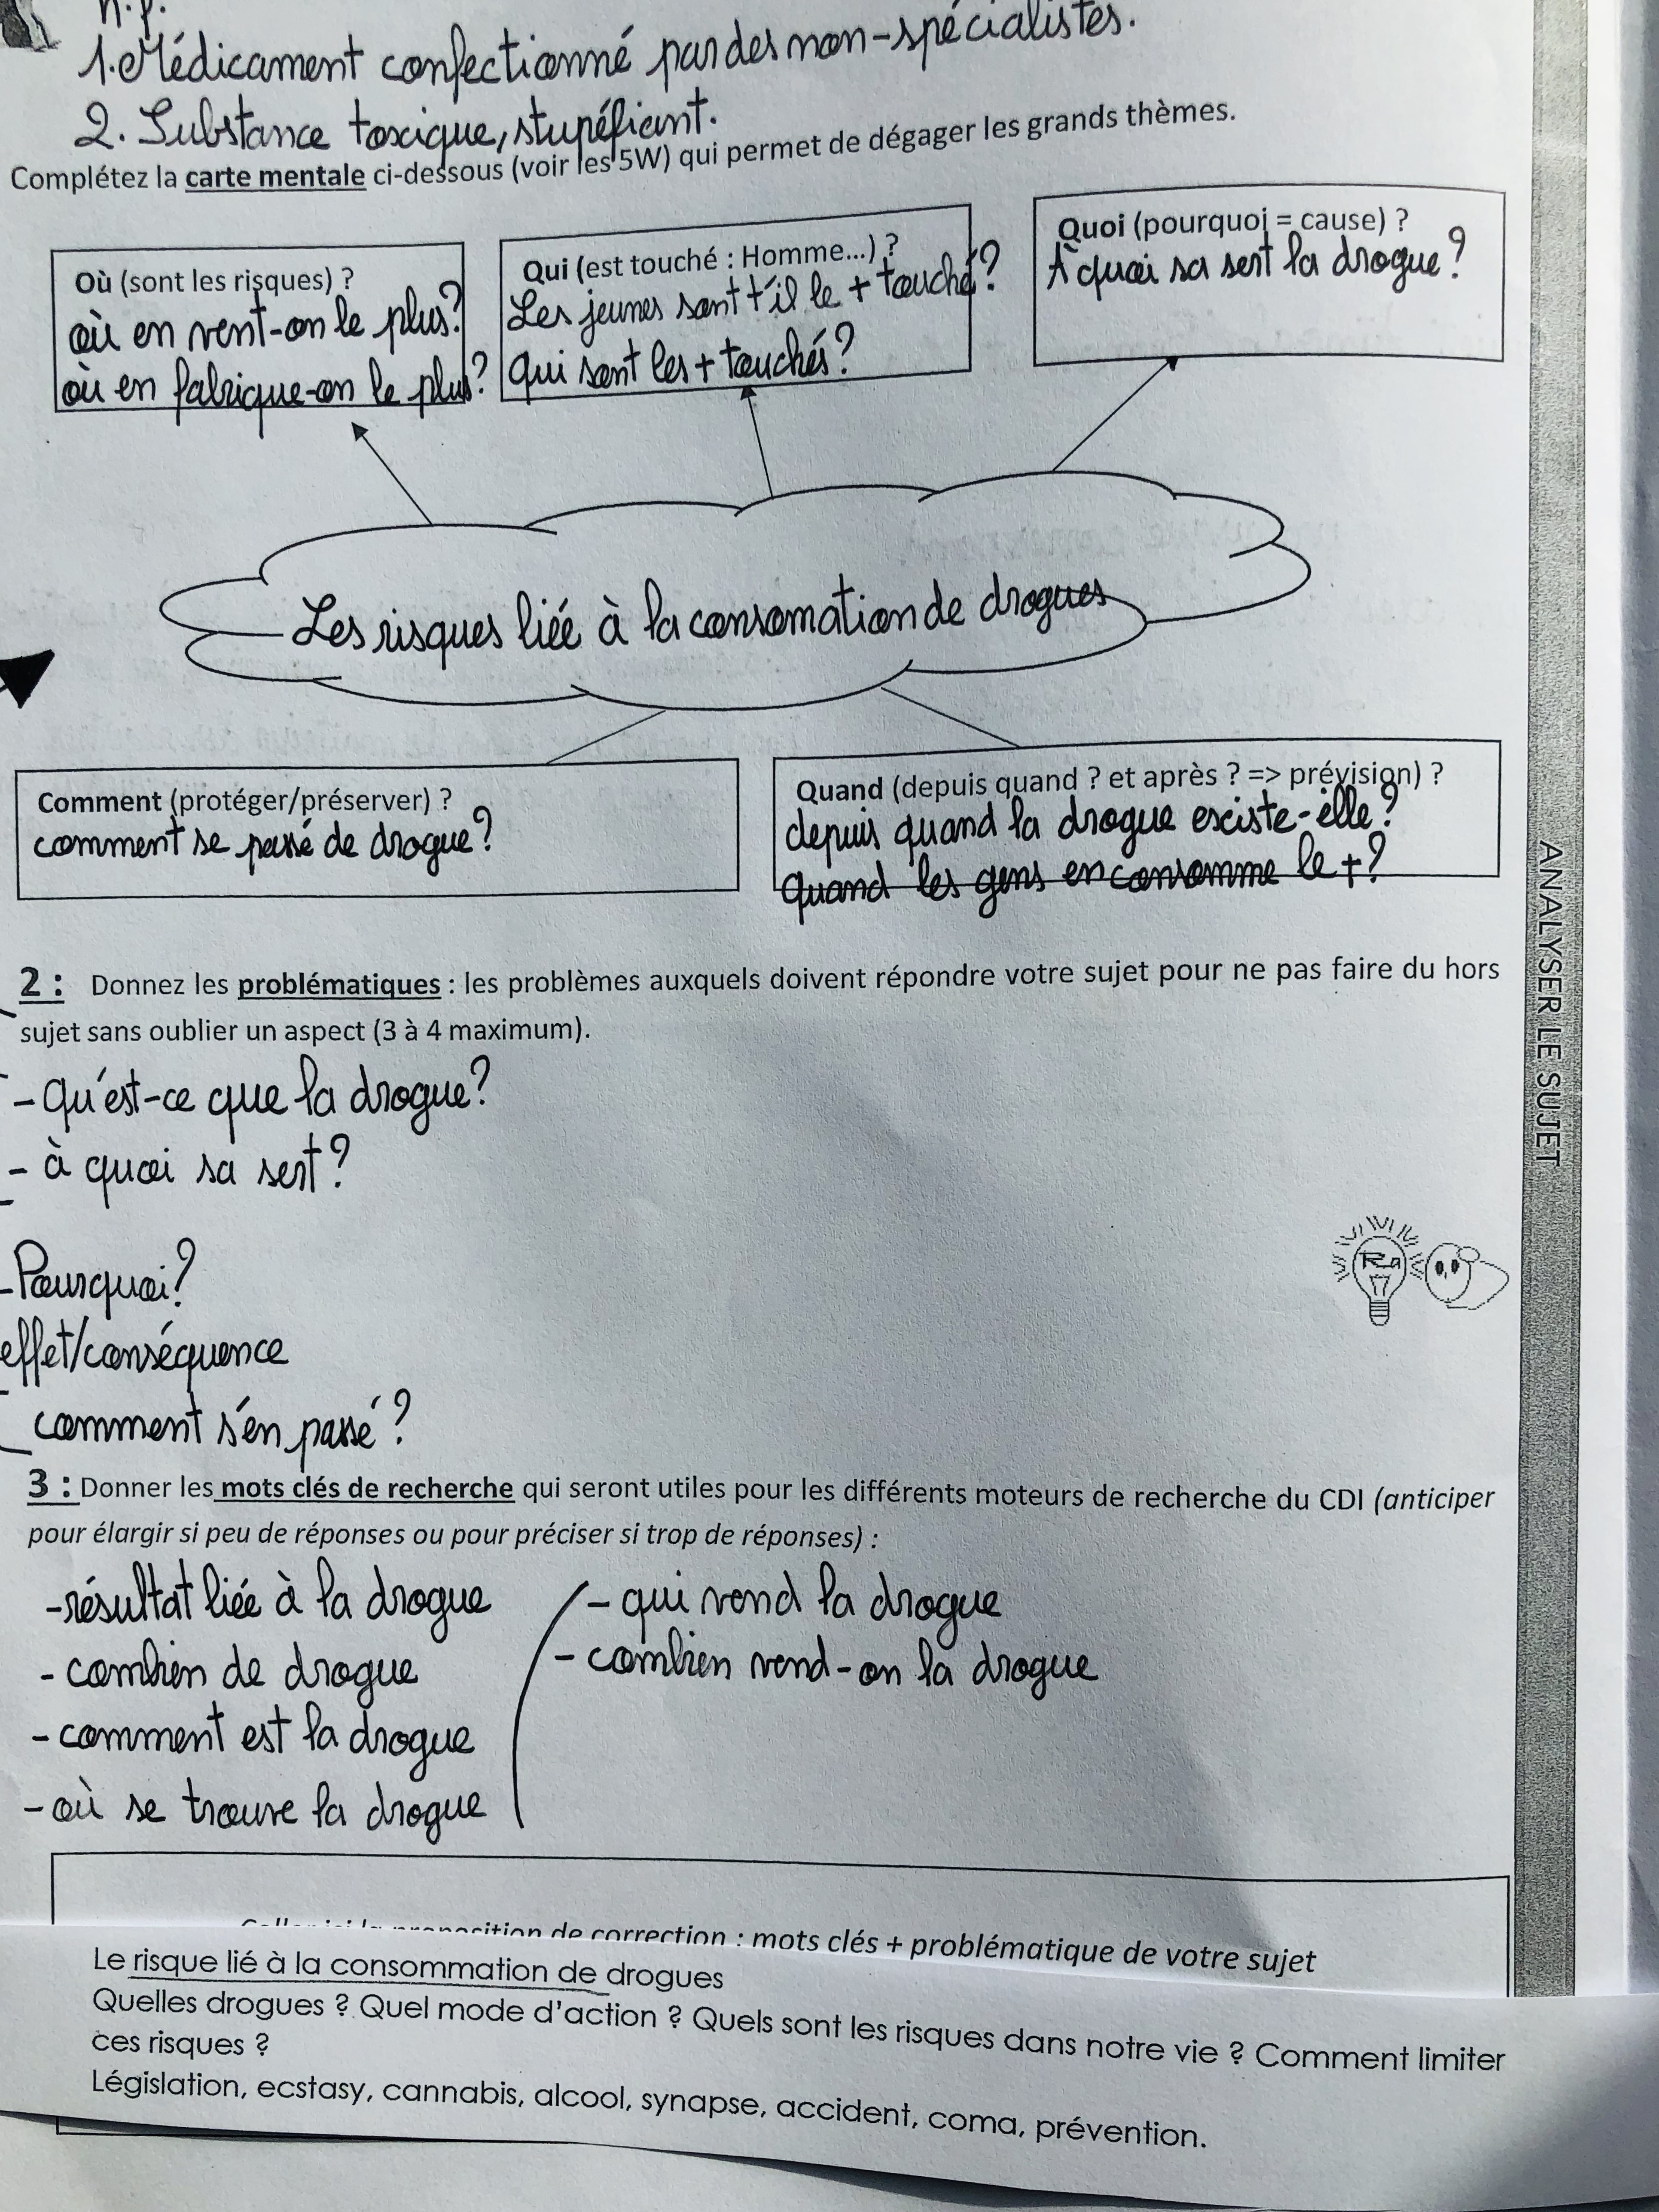 n.f.
1. Médicament confectionné par des non-spécialistes.
2. Substance toxique, stupéfiant.
Complétez la carte mentale ci-dessous (voir les 5W) qui permet de dégager les grands thèmes.
Où (sont les risques) ?
où en vent-on le plus?
où en fabrique-on le plus?
Qui (est touché : Homme...) ?
Les jeunes sont t'il le + touché?
qui sont les + touchés?
Quoi (pourquoi = cause) ?
À quoi sa sert la drogue?
Les risques liée à la consomation de drogues
Comment (protéger/préserver) ?
comment se passé de drogue?
Quand (depuis quand ? et après ? => prévision) ?
depuis quand la drogue esciste-elle?
quand les gens en consomme le +?
ANALYSER LE SUJET
2 : Donnez les problématiques : les problèmes auxquels doivent répondre votre sujet pour ne pas faire du hors
sujet sans oublier un aspect (3 à 4 maximum).
- Qu'est-ce que la drogue?
- à quoi sa sert?
- Pourquoi?
effet/conséquence
comment s'en passé?
3 : Donner les mots clés de recherche qui seront utiles pour les différents moteurs de recherche du CDI (anticiper
pour élargir si peu de réponses ou pour préciser si trop de réponses) :
- résultat liée à la drogue
- combien de drogue
- comment est la drogue
- où se trouve la drogue
- qui vend la drogue
- combien vend-on la drogue
proposition de correction : mots clés + problématique de votre sujet
Le risque lié à la consommation de drogues
Quelles drogues ? Quel mode d'action ? Quels sont les risques dans notre vie ? Comment limiter
ces risques ?
Législation, ecstasy, cannabis, alcool, synapse, accident, coma, prévention.